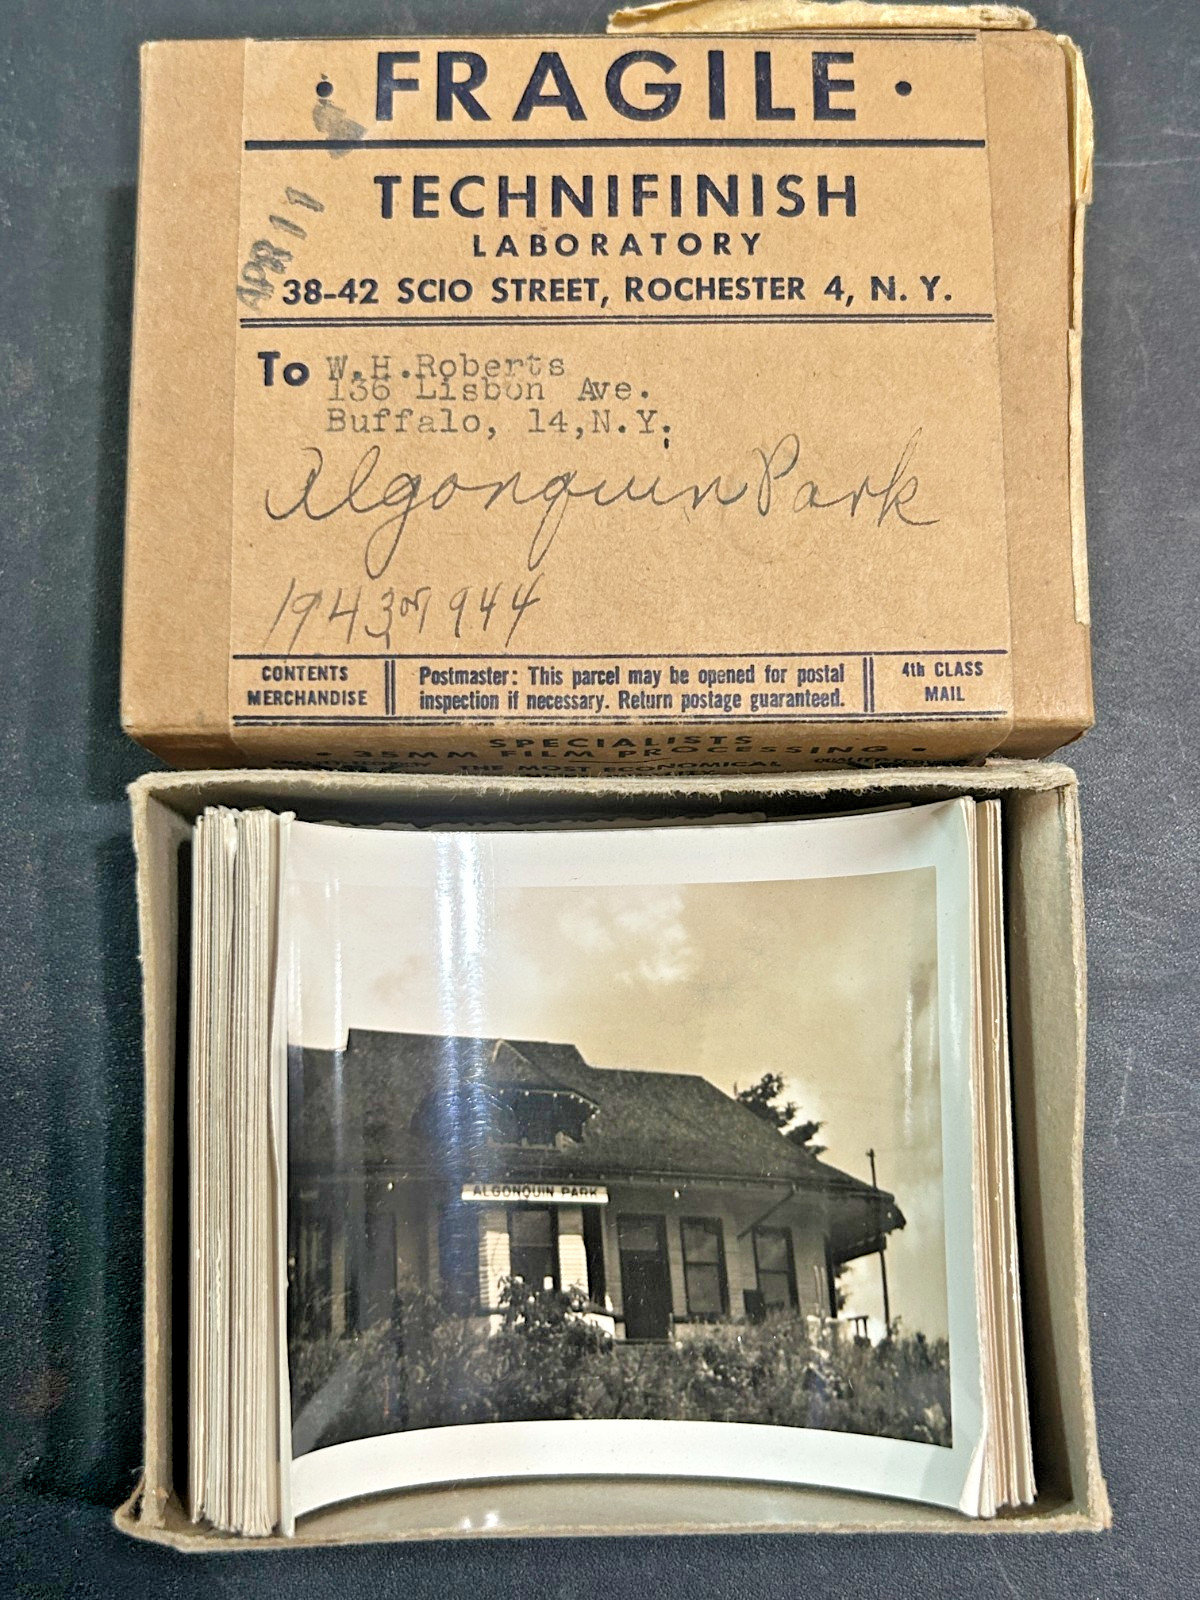 • FRAGILE •
TECHNIFINISH
LABORATORY
APR 11
38-42 SCIO STREET, ROCHESTER 4, N. Y.
To W.H.Roberts
136 Lisbon Ave.
Buffalo, 14,N.Y.
Algonquin Park
1943 or 944
CONTENTS
MERCHANDISE
Postmaster: This parcel may be opened for postal
inspection if necessary. Return postage guaranteed.
4th CLASS
MAIL
SPECIALISTS
• 35MM FILM PROCESSING •
THE MOST ECONOMICAL
ALGONQUIN PARK